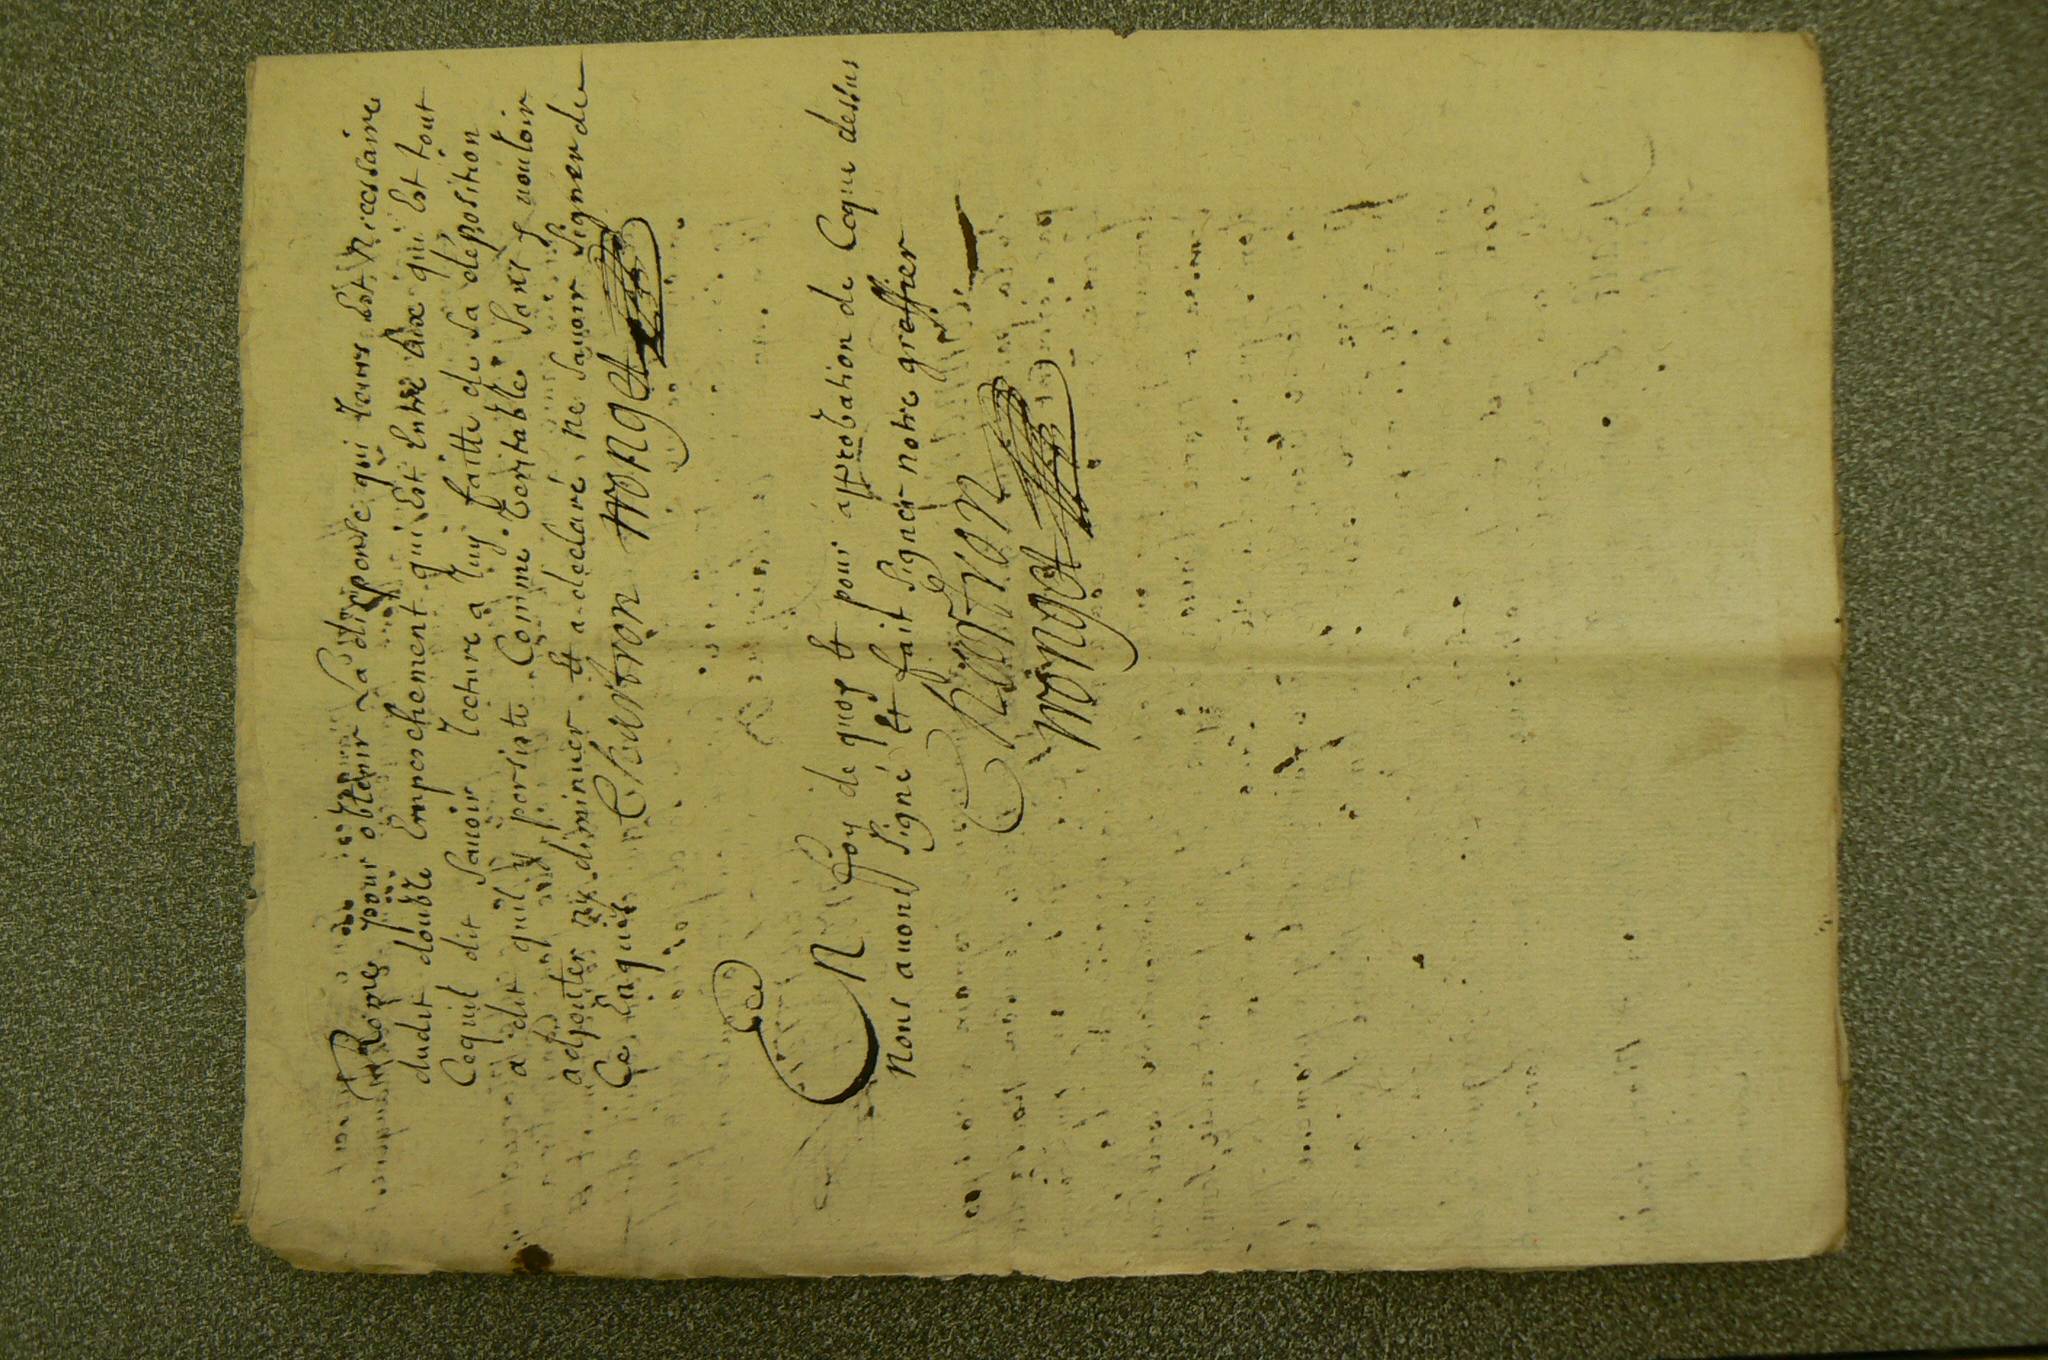 Rome pour obtenir La dispense qui leurs Est Necessaire
dudit double Empeschement qui Est Entre Eux qui Est tout
Cequil dit Sauoir Lecture a luy faitte de Sa deposition
a dit quil y persiste Comme Veritable Sans y uouloir
adjouter ny diminuer Et a declaré ne Sauoir Signer de
Ce Enquis Chartron monget
EN foy de quoy Et pour approbation de Ceque dessus
Nous auons Signé Et fait Signer notre greffier
Chartron
monget